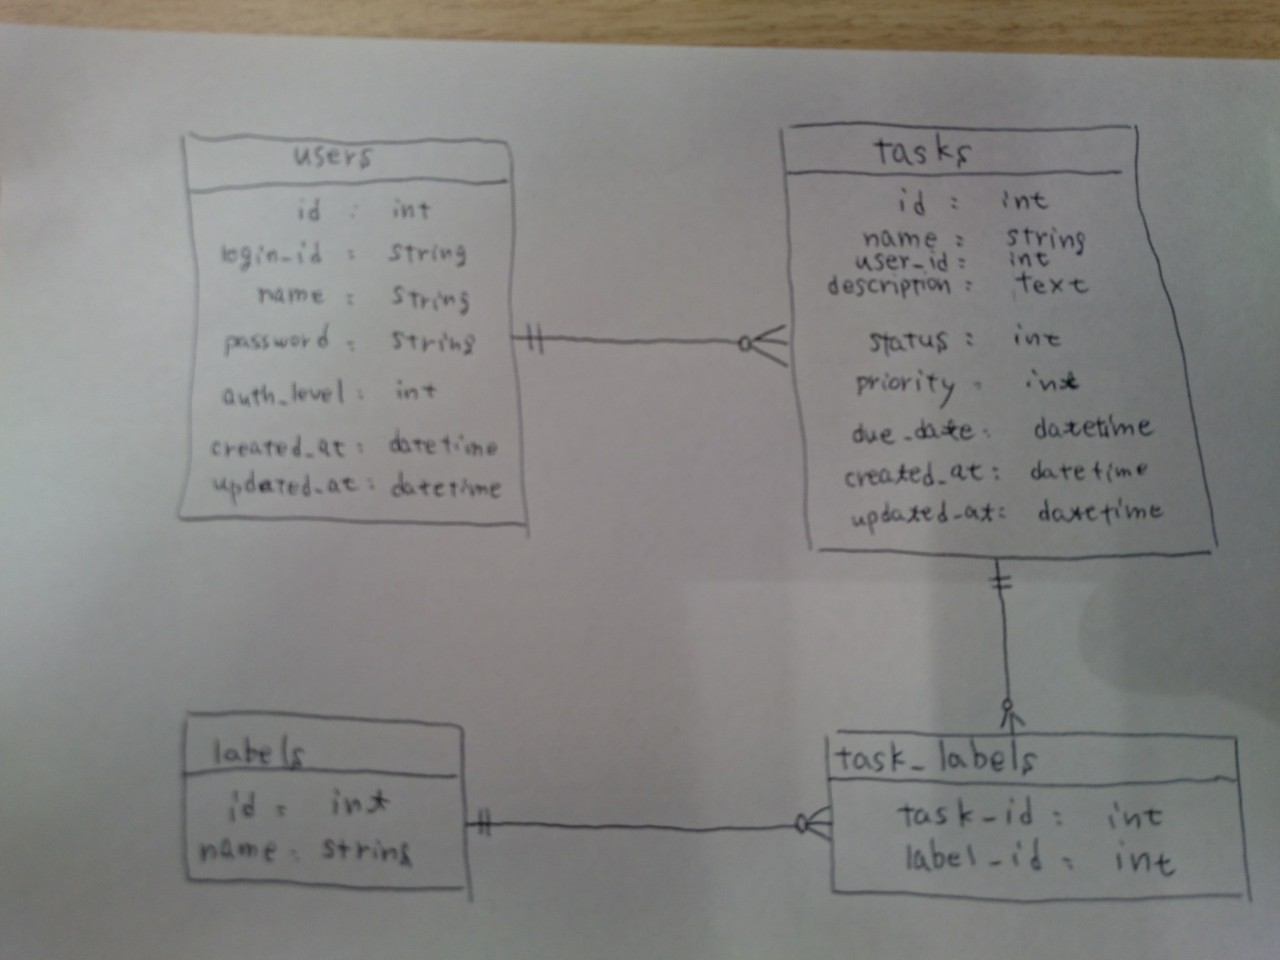 users
id : int
login_id : string
name : string
password : string
auth_level : int
created_at : datetime
updated_at : datetime
tasks
id : int
name : string
user_id : int
description : text
status : int
priority : int
due_date : datetime
created_at : datetime
updated_at : datetime
labels
id : int
name : string
task_labels
task_id : int
label_id : int